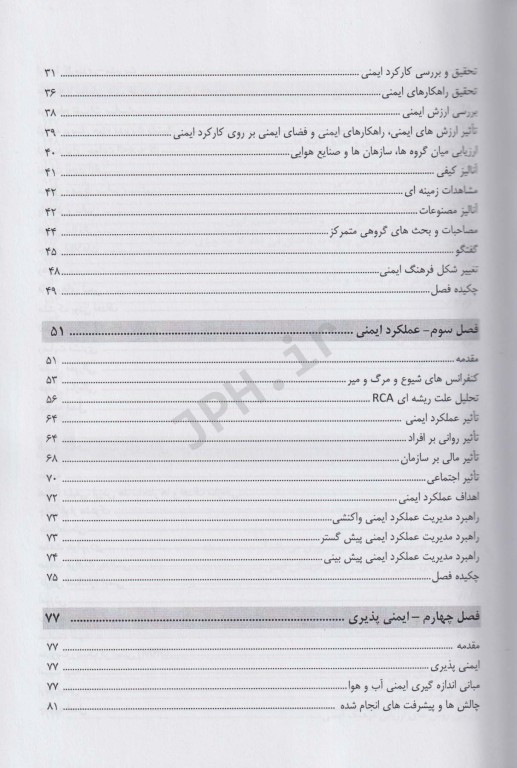 تحقیق و بررسی کارکرد ایمنی ۳۱
تحقیق راهکارهای ایمنی ۳۶
بررسی ارزش ایمنی ۳۸
تأثیر ارزش های ایمنی، راهکارهای ایمنی و فضای ایمنی بر روی کارکرد ایمنی ۳۹
ارزیابی میان گروه ها، سازهان ها و صنایع هوایی ۴۰
آنالیز کیفی ۴۱
مشاهدات زمینه ای ۴۲
آنالیز مصنوعات ۴۲
مصاحبات و بحث های گروهی متمرکز ۴۴
گفتگو ۴۵
تعییر شکل فرهنگ ایمنی ۴۸
چکیده فصل ۴۹
فصل سوم- عملکرد ایمنی ۵۱
مقدمه ۵۱
کنفرانس های شیوع و مرگ و میر ۵۳
تحلیل علت ریشه ای RCA ۵۶
تأثیر عملکرد ایمنی ۶۴
تأثیر روانی بر افراد ۶۴
تأثیر مالی بر سازمان ۶۸
تأثیر اجتماعی ۷۰
اهداف عملکرد ایمنی ۷۲
راهبرد مدیریت عملکرد ایمنی واکنشی ۷۳
راهبرد مدیریت عملکرد ایمنی پیش گستر ۷۳
راهبرد مدیریت عملکرد ایمنی پیش بینی ۷۴
چکیده فصل ۷۵
فصل چهارم – ایمنی پذیری ۷۷
مقدمه ۷۷
ایمنی پذیری ۷۷
مبانی اندازه گیری ایمنی آب و هوا ۷۷
چالش ها و پیشرفت های انجام شده ۸۱
JPH.ir